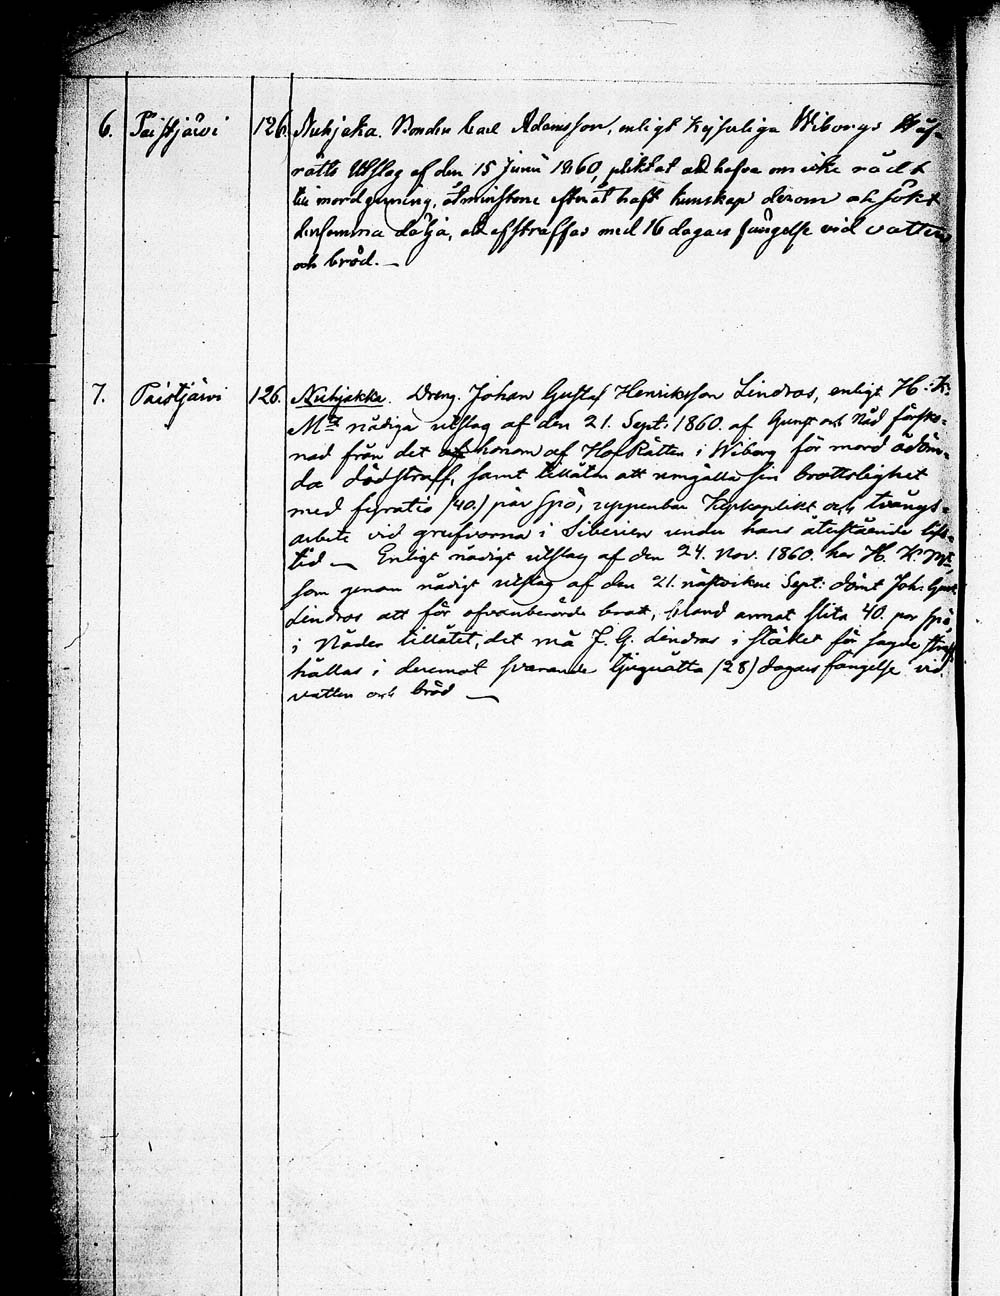 6. Paistjärvi 126. Nuhjaka. Bonden Carl Adamsson, enligt Kejserliga Wiborgs Hof-
rätts Utslag af den 15 Junii 1860, pliktat att hafva om icke rådt
till mordgerning, åtminstone efteråt haft kunskap derom och sökt
densamma dölja, att afstraffas med 16 dagars fängelse vid vatten
och bröd. —
7. Paistjärvi 126. Nuhjakka. Dreng. Johan Gustaf Henriksson Lindroos, enligt H: K:
Mts nådiga utslag af den 21. Sept: 1860. af Gunst och Nåd försko-
nad från det honom af HofRätten i Wiborg för mord ådöm-
da dödsstraff, samt tillåten att umgälla sin brottslighet
med fyratio (40.) par spö, uppenbar Kyrkoplikt och tvångs-
arbete vid grufvorna i Siberien under hans återstående lifs-
tid — Enligt nådigt utslag af den 24. Nov. 1860 har H. K. Mt,
som genom nådigt utslag af den 21. nästvikne Sept: dömt Joh. Gust
Lindroos att för ofvanberörde brott, bland annat slita 40. par spö
i Nåder tillåtet, det må J. G. Lindroos i stället för sagde straff
hållas i deremot svarande tjuguåtta (28) dagars fängelse vid
vatten och bröd —